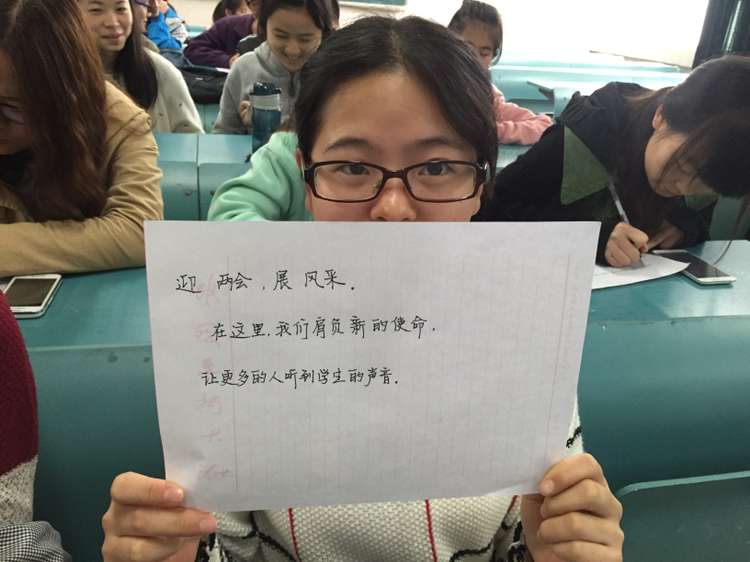 迎两会,展风采.
在这里,我们肩负新的使命.
让更多的人听到学生的声音.